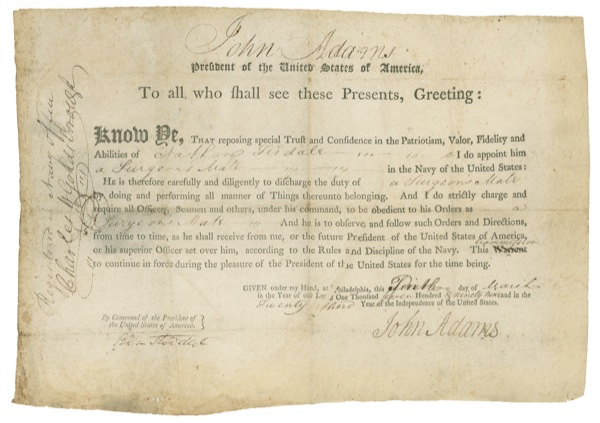 John Adams
President of the United States of America,
To all, who shall see these Presents, Greeting:
Know Ye, THAT reposing special Trust and Confidence in the Patriotism, Valor, Fidelity and
Abilities of Tisdale I do appoint him
a Surgeons Mate in the Navy of the United States:
He is therefore carefully and diligently to discharge the duty of a Surgeons Mate
by doing and performing all manner of Things thereunto belonging. And I do strictly charge and
require all Officers, Seamen and others, under his command, to be obedient to his Orders as a
Surgeons Mate And he is to observe and follow such Orders and Directions,
from time to time, as he shall receive from me, or the future President of the United States of America,
or his superior Officer set over him, according to the Rules and Discipline of the Navy. This Warrant Commission
to continue in force during the pleasure of the President of the United States for the time being.
GIVEN under my Hand, at Philadelphia, this day of March
in the Year of our Lord One Thousand seven Hundred & ninety nine and in the
Twenty third Year of the Independence of the United States.
John Adams
By Command of the President of
the United States of America.
Ben Stoddert
Registered in Navy Office
Charles W Goldsborough